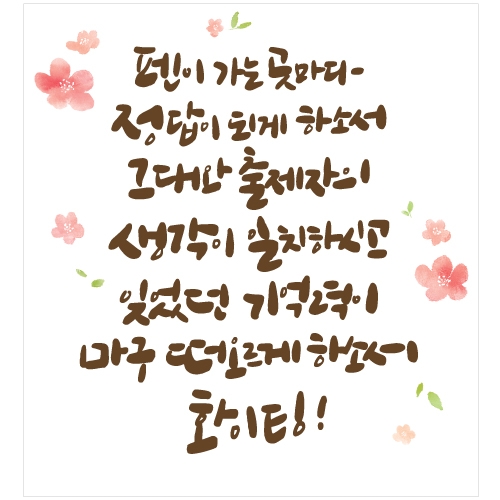 펜이 가는 곳마다-
정답이 되게 하소서
그대와 출제자의
생각이 일치하시고
잊었던 기억력이
마구 떠오르게 하소서
화이팅!